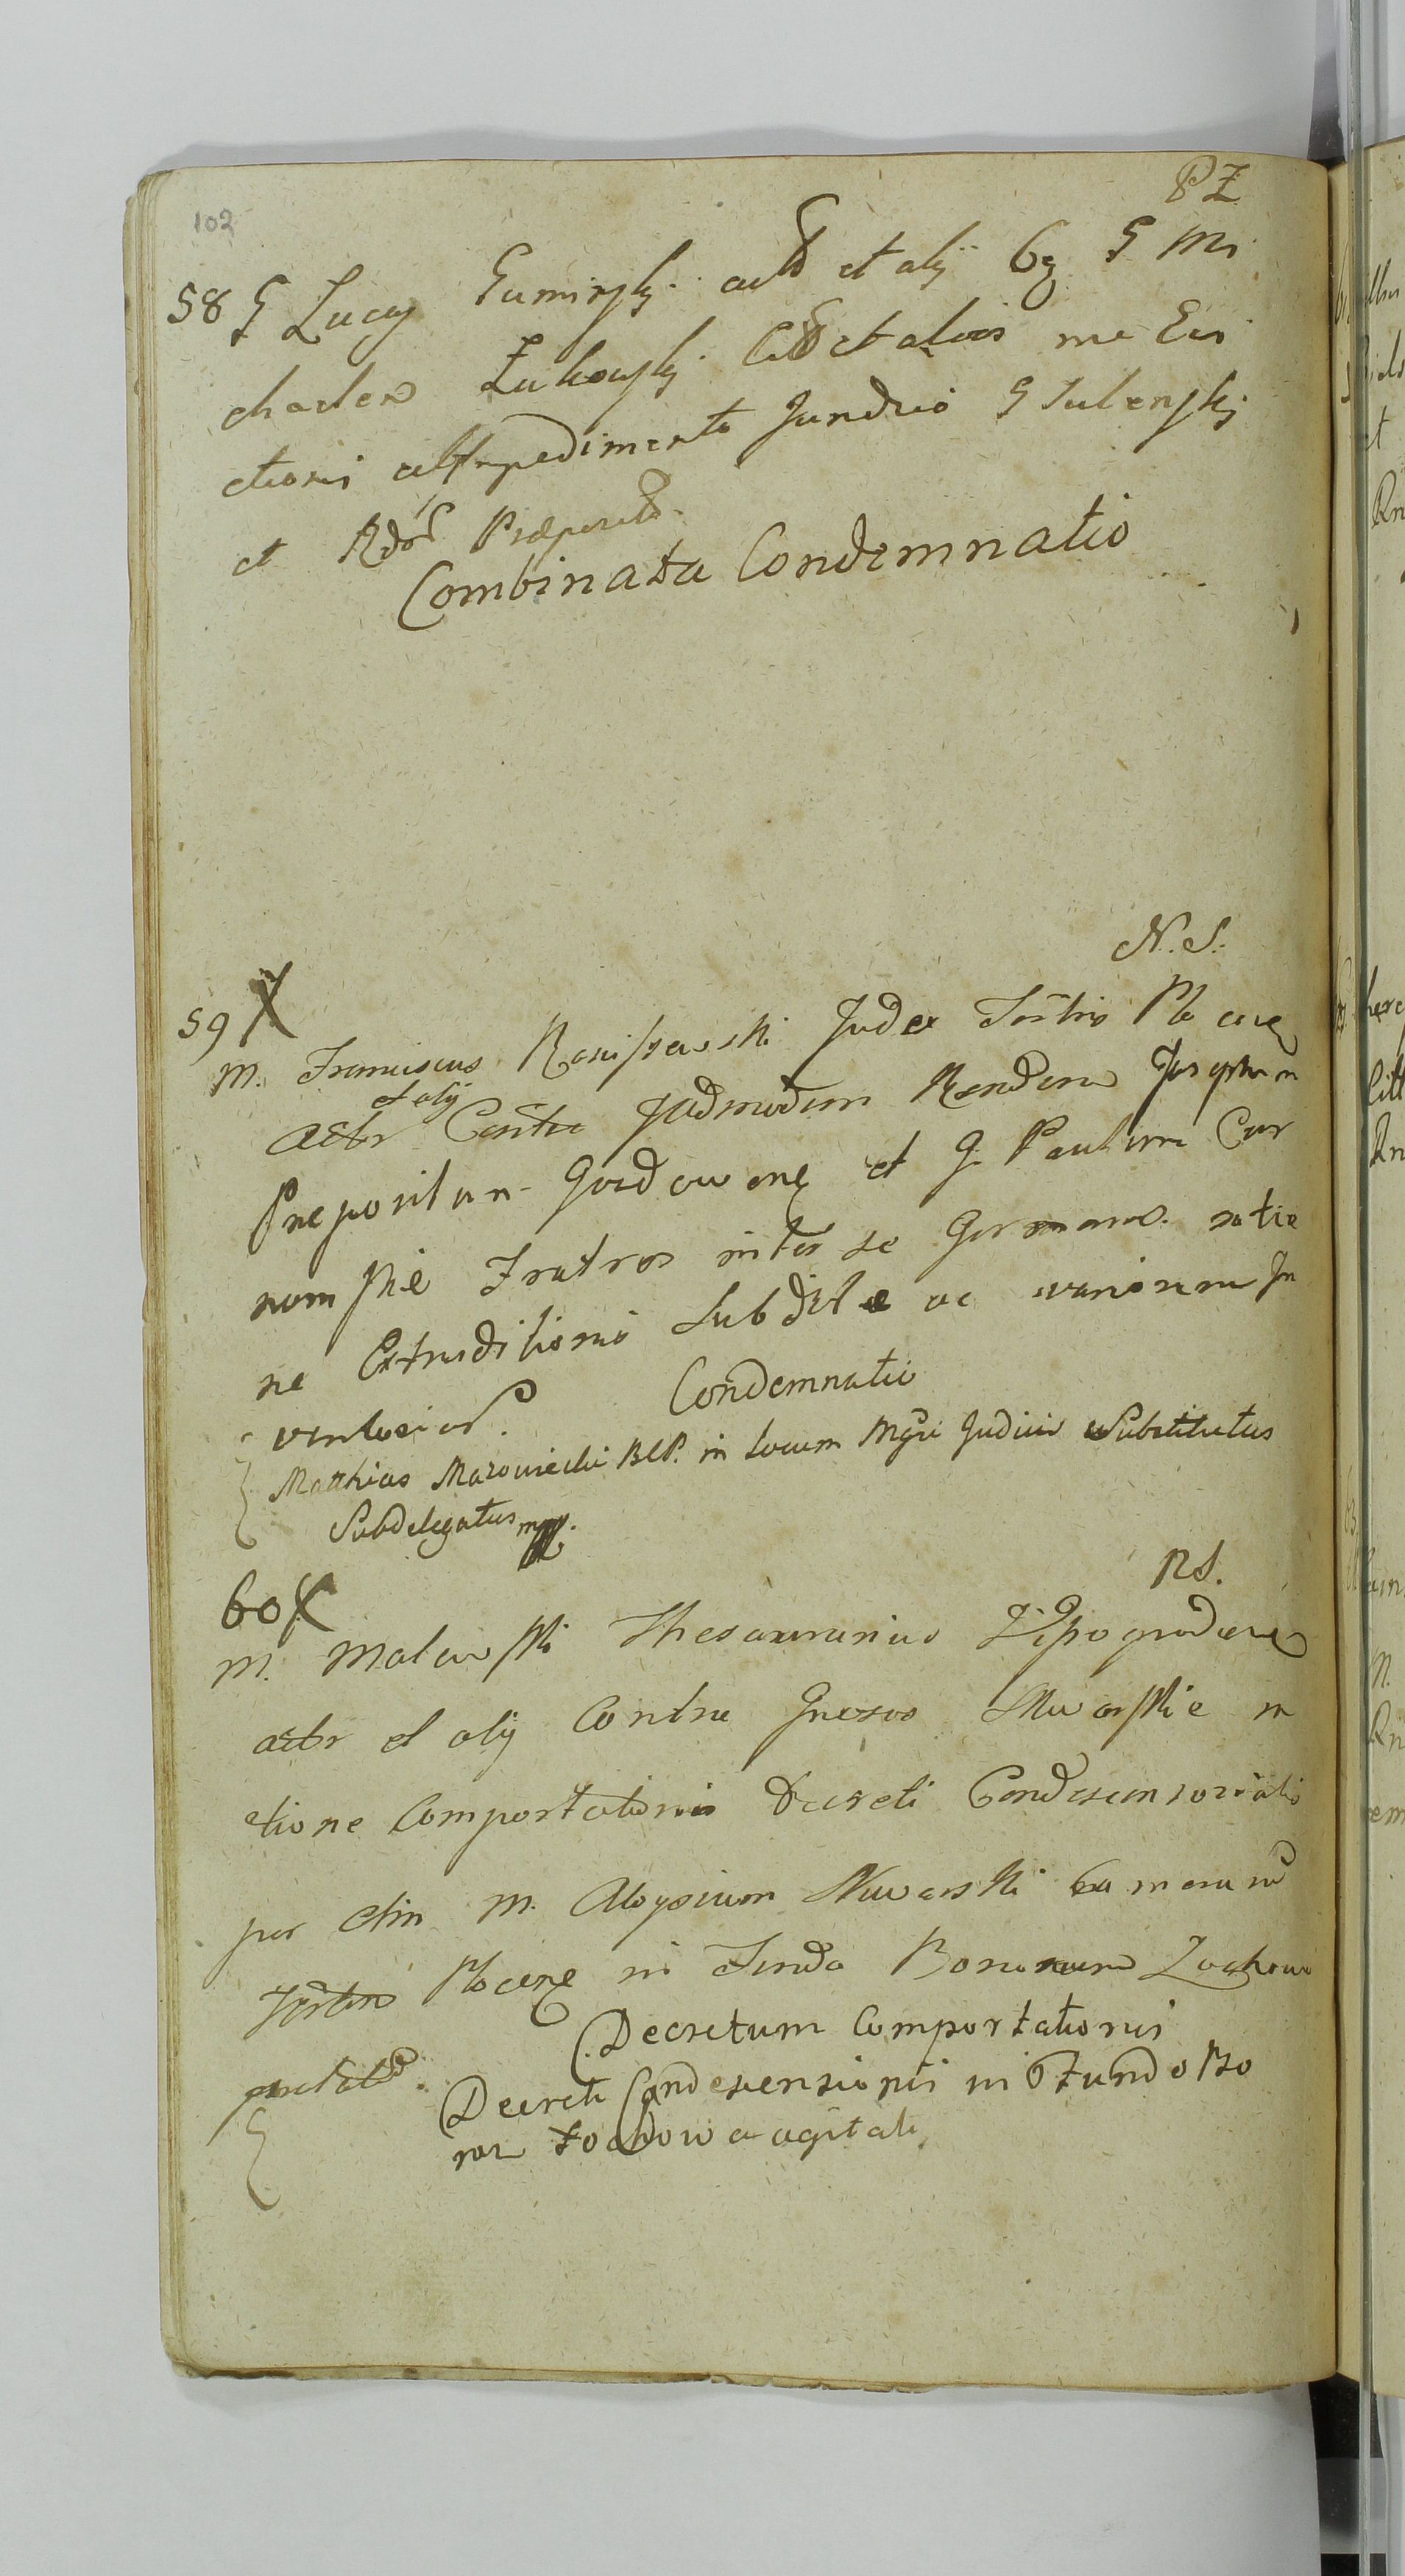 102
PZ
58 G Lucas Guminskj actor et alij Cg G Mi
chaelem Żukowskj C et alios rne Evi
ctionis ab Impedimento Juridico G Sulenskj
et Rdor Praeposito
Combinata Condemnatio
N. S.
59 X
M. Franciscus Raciszewski Judex Tertris Plocen
et alij
actor Contra Admodum Rendum Josephum
Prepositum Gozdowen et G. Paulum Czar
nomskie Fratres inter se Germanos ratio
ne Extraditionis Subditae ac variorum In
ventarior.
Condemnatio
Matthias Mazowiecki BCP. in locum Mgci Judicis Substitutus
Subdelegatus mpp.
60 X
RS.
M. Malewski Thesaurarius Wyszogrodien
actor et alij Contra Gnesos Nuwarskie ra
tione Comportationis Decreti Condescensorialis
per olim M. Aloysium Nuwarski Camerarium
Tertris Plocen in Fundo Bonorum Zochowo
prolati.
Decretum Comportationis
Decreti Condescensionis in Fundo Bo
nor Zochowo agitati